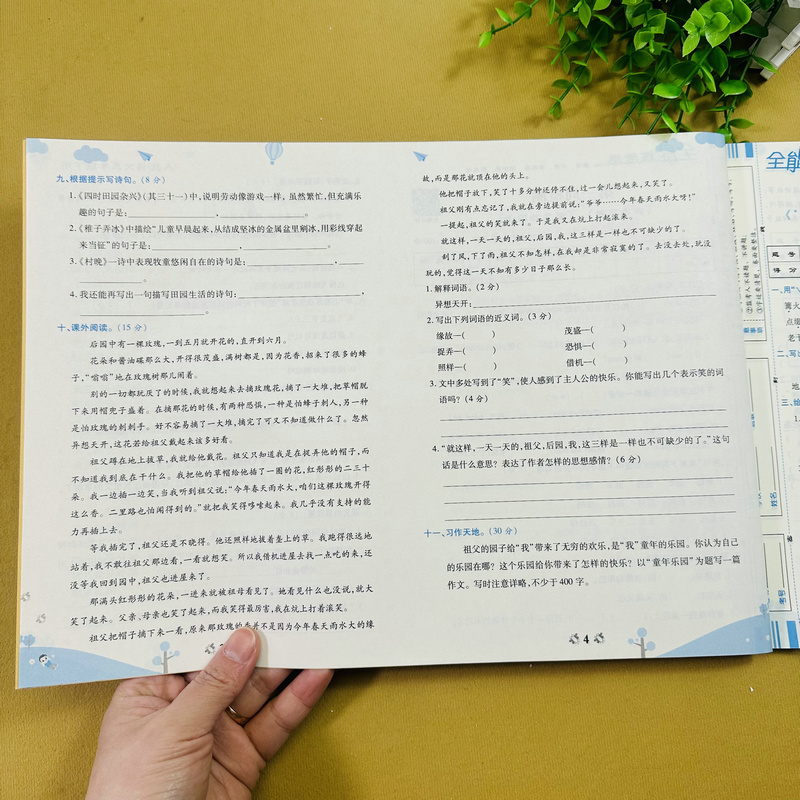 九、根据提示写诗句。(8 分)
1.《四时田园杂兴》(其三十一)中,说明劳动像游戏一样,虽然繁忙,但充满乐
趣的句子是:,。
2.《稚子弄冰》中描绘“儿童早晨起来,从结成坚冰的金属盆里剜冰,用彩线穿起
来当钲”的句子是:,。
3.《村晚》一诗中表现牧童悠闲自在的诗句是:,
。
4. 我还能再写出一句描写田园生活的诗句:,
。
十、课外阅读。(15 分)
后园中有一棵玫瑰,一到五月就开花的,直开到六月。
花朵和酱油碟那么大,开得很茂盛,满树都是,因为花香,招来了很多的蜂
子,“嗡嗡”地在玫瑰树那儿闹着。
别的一切都玩厌了的时候,我就想起来去摘玫瑰花,摘了一大堆,把草帽脱
下来用帽兜子盛着。在摘那花的时候,有两种恐惧,一种是怕蜂子刺人,另一种
是怕玫瑰的刺刺手。好不容易摘了一大堆,摘完了可又不知道做什么了。忽然
异想天开,这花若给祖父戴起来该多好看。
祖父蹲在地上拔草,我就给他戴花。祖父只知道我是在捉弄他的帽子,而
不知道我到底在干什么。我把他的草帽给他插了一圈的花,红彤彤的二三十
朵。我一边插一边笑,当我听到祖父说:“今年春天雨水大,咱们这棵玫瑰开得
这么香。二里路也怕闻得到的。”就把我笑得哆嗦起来。我几乎没有支持的能
力再插上去。
等我插完了,祖父还是不晓得。他还照样地拔着垄上的草。我跑得很远地
站着,我不敢往祖父那边看,一看就想笑。所以我借机进屋去找一点吃的来,还
没等我回到园中,祖父也进屋来了。
那满头红彤彤的花朵,一进来就被祖母看见了。她看见什么也没说,就大
笑了起来。父亲、母亲也笑了起来,而我笑得最厉害,我在炕上打着滚笑。
祖父把帽子摘下来一看,原来那玫瑰的香并不是因为今年春天雨水大的缘
故,而是那花就顶在他的头上。
他把帽子放下,笑了十多分钟还停不住,过一会儿想起来,又笑了。
祖父刚有点忘记了,我就在旁边提前说:“爷爷……今年春天雨水大呀!”
一提起,祖父的笑就来了。于是我又在炕上打起滚来。
就这样,一天一天的,祖父,后园,我,这三样是一样也不可缺少的了。
刮了风,下了雨,祖父不知怎样,在我却是非常寂寞的了。去没去处,玩没
玩的,觉得这一天不知有多少日子那么长。
1. 解释词语。(2 分)
异想天开:
2. 写出下列词语的近义词。(3 分)
缘故—( ) 茂盛—( )
捉弄—( ) 恐惧—( )
照样—( ) 借机—( )
3. 文中多处写到了“笑”,使人感到了主人公的快乐。你能写出几个表示笑的词
语吗?(4 分)
4.“就这样,一天一天的,祖父,后园,我,这三样是一样也不可缺少的了。”这句
话是什么意思?表达了作者怎样的思想感情?(6 分)
十一、习作天地。(30 分)
祖父的园子给“我”带来了无穷的欢乐,是“我”童年的乐园。你认为自己
的乐园在哪?这个乐园给你带来了怎样的快乐?以“童年乐园”为题写一篇
作文。写时注意详略,不少于 400 字。
4
全能
题 号
得 分
一、用“
二、写
三、给
姓名